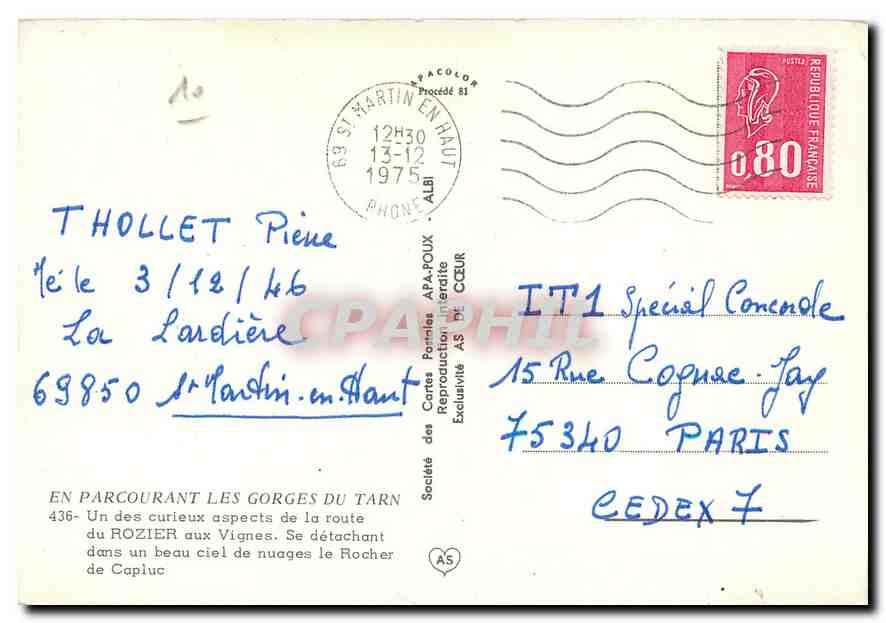 10
APACOLOR
Procédé 81
69 ST MARTIN EN HAUT
12H30
13-12
1975
RHONE
POSTES
REPUBLIQUE FRANÇAISE
0,80
THOLLET Pierre
Né le 3/12/46
La Lardière
69850 St Martin-en-Haut
IT1 Spécial Concorde
15 Rue Cognac-Jay
75340 PARIS
CEDEX 7
CPAPHIL
Société des Cartes Postales APA-POUX - ALBI
Reproduction interdite
Exclusivité AS DE CŒUR
EN PARCOURANT LES GORGES DU TARN
436- Un des curieux aspects de la route
du ROZIER aux Vignes. Se détachant
dans un beau ciel de nuages le Rocher
de Capluc
AS